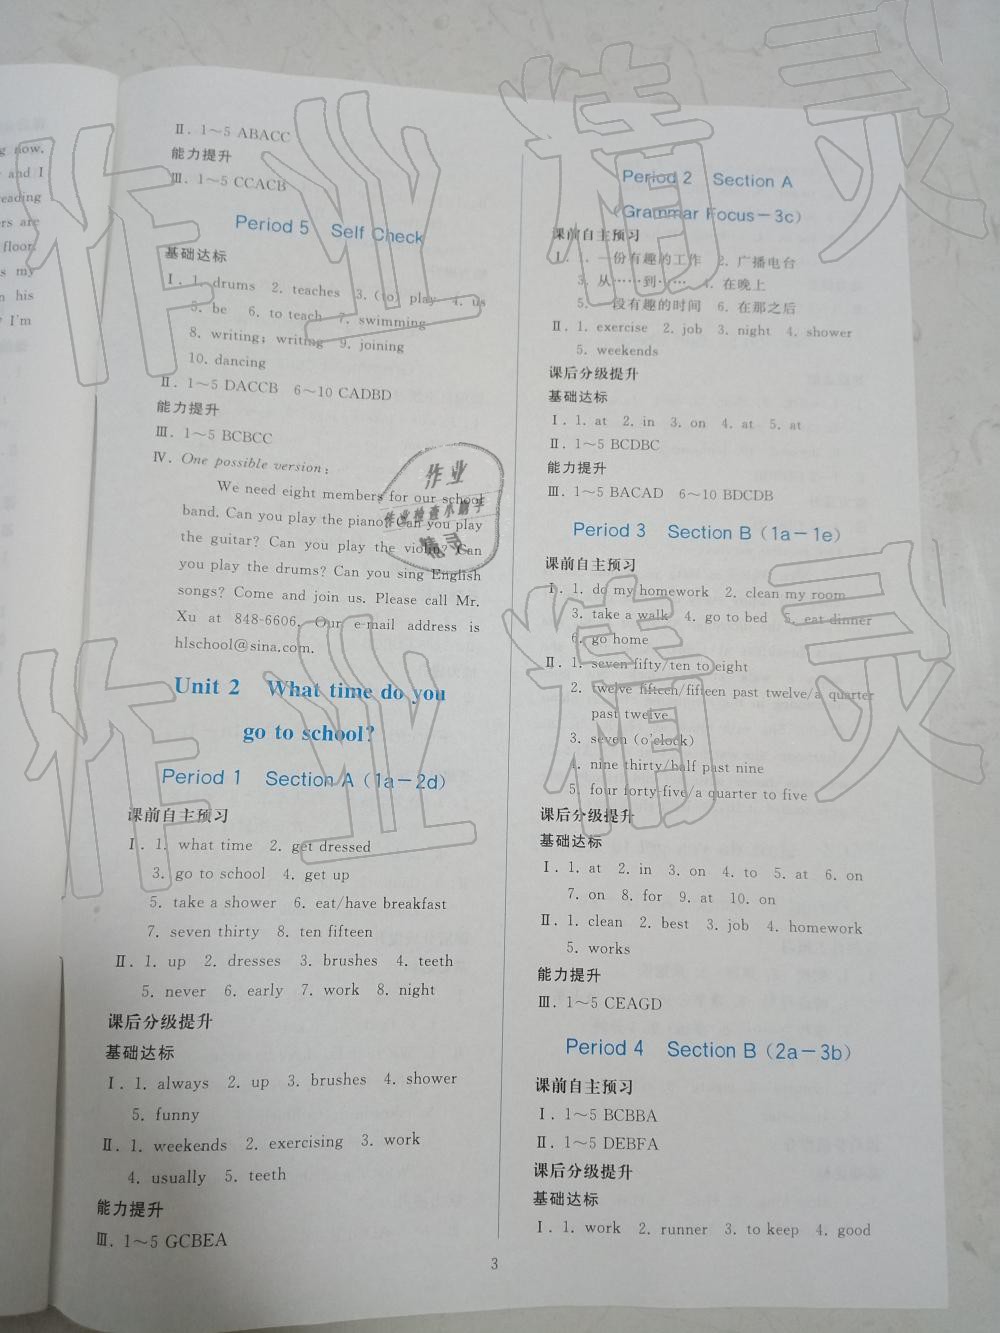 g now.
and I
eading
ers are
floor.
s my
n his
I'm
Ⅱ. 1～5 ABACC
能力提升
Ⅲ. 1～5 CCACB
Period 5 Self Check
基础达标
Ⅰ. 1. drums 2. teaches 3. (to) play 4. us
5. be 6. to teach 7. swimming
8. writing; writing 9. joining
10. dancing
Ⅱ. 1～5 DACCB 6～10 CADBD
能力提升
Ⅲ. 1～5 BCBCC
Ⅳ. One possible version:
We need eight members for our school
band. Can you play the piano? Can you play
the guitar? Can you play the violin? Can
you play the drums? Can you sing English
songs? Come and join us. Please call Mr.
Xu at 848-6606. Our e-mail address is
hlschool@sina.com.
Unit 2 What time do you
go to school?
Period 1 Section A (1a－2d)
课前自主预习
Ⅰ. 1. what time 2. get dressed
3. go to school 4. get up
5. take a shower 6. eat/have breakfast
7. seven thirty 8. ten fifteen
Ⅱ. 1. up 2. dresses 3. brushes 4. teeth
5. never 6. early 7. work 8. night
课后分级提升
基础达标
Ⅰ. 1. always 2. up 3. brushes 4. shower
5. funny
Ⅱ. 1. weekends 2. exercising 3. work
4. usually 5. teeth
能力提升
Ⅲ. 1～5 GCBEA
Period 2 Section A
(Grammar Focus－3c)
课前自主预习
Ⅰ. 1. 一份有趣的工作 2. 广播电台
3. 从……到…… 4. 在晚上
5. 一段有趣的时间 6. 在那之后
Ⅱ. 1. exercise 2. job 3. night 4. shower
5. weekends
课后分级提升
基础达标
Ⅰ. 1. at 2. in 3. on 4. at 5. at
Ⅱ. 1～5 BCDBC
能力提升
Ⅲ. 1～5 BACAD 6～10 BDCDB
Period 3 Section B (1a－1e)
课前自主预习
Ⅰ. 1. do my homework 2. clean my room
3. take a walk 4. go to bed 5. eat dinner
6. go home
Ⅱ. 1. seven fifty/ten to eight
2. twelve fifteen/fifteen past twelve/a quarter
past twelve
3. seven (o'clock)
4. nine thirty/half past nine
5. four forty-five/a quarter to five
课后分级提升
基础达标
Ⅰ. 1. at 2. in 3. on 4. to 5. at 6. on
7. on 8. for 9. at 10. on
Ⅱ. 1. clean 2. best 3. job 4. homework
5. works
能力提升
Ⅲ. 1～5 CEAGD
Period 4 Section B (2a－3b)
课前自主预习
Ⅰ. 1～5 BCBBA
Ⅱ. 1～5 DEBFA
课后分级提升
基础达标
Ⅰ. 1. work 2. runner 3. to keep 4. good
3
作业精灵
作业精灵
作业
作业检查小助手
精灵